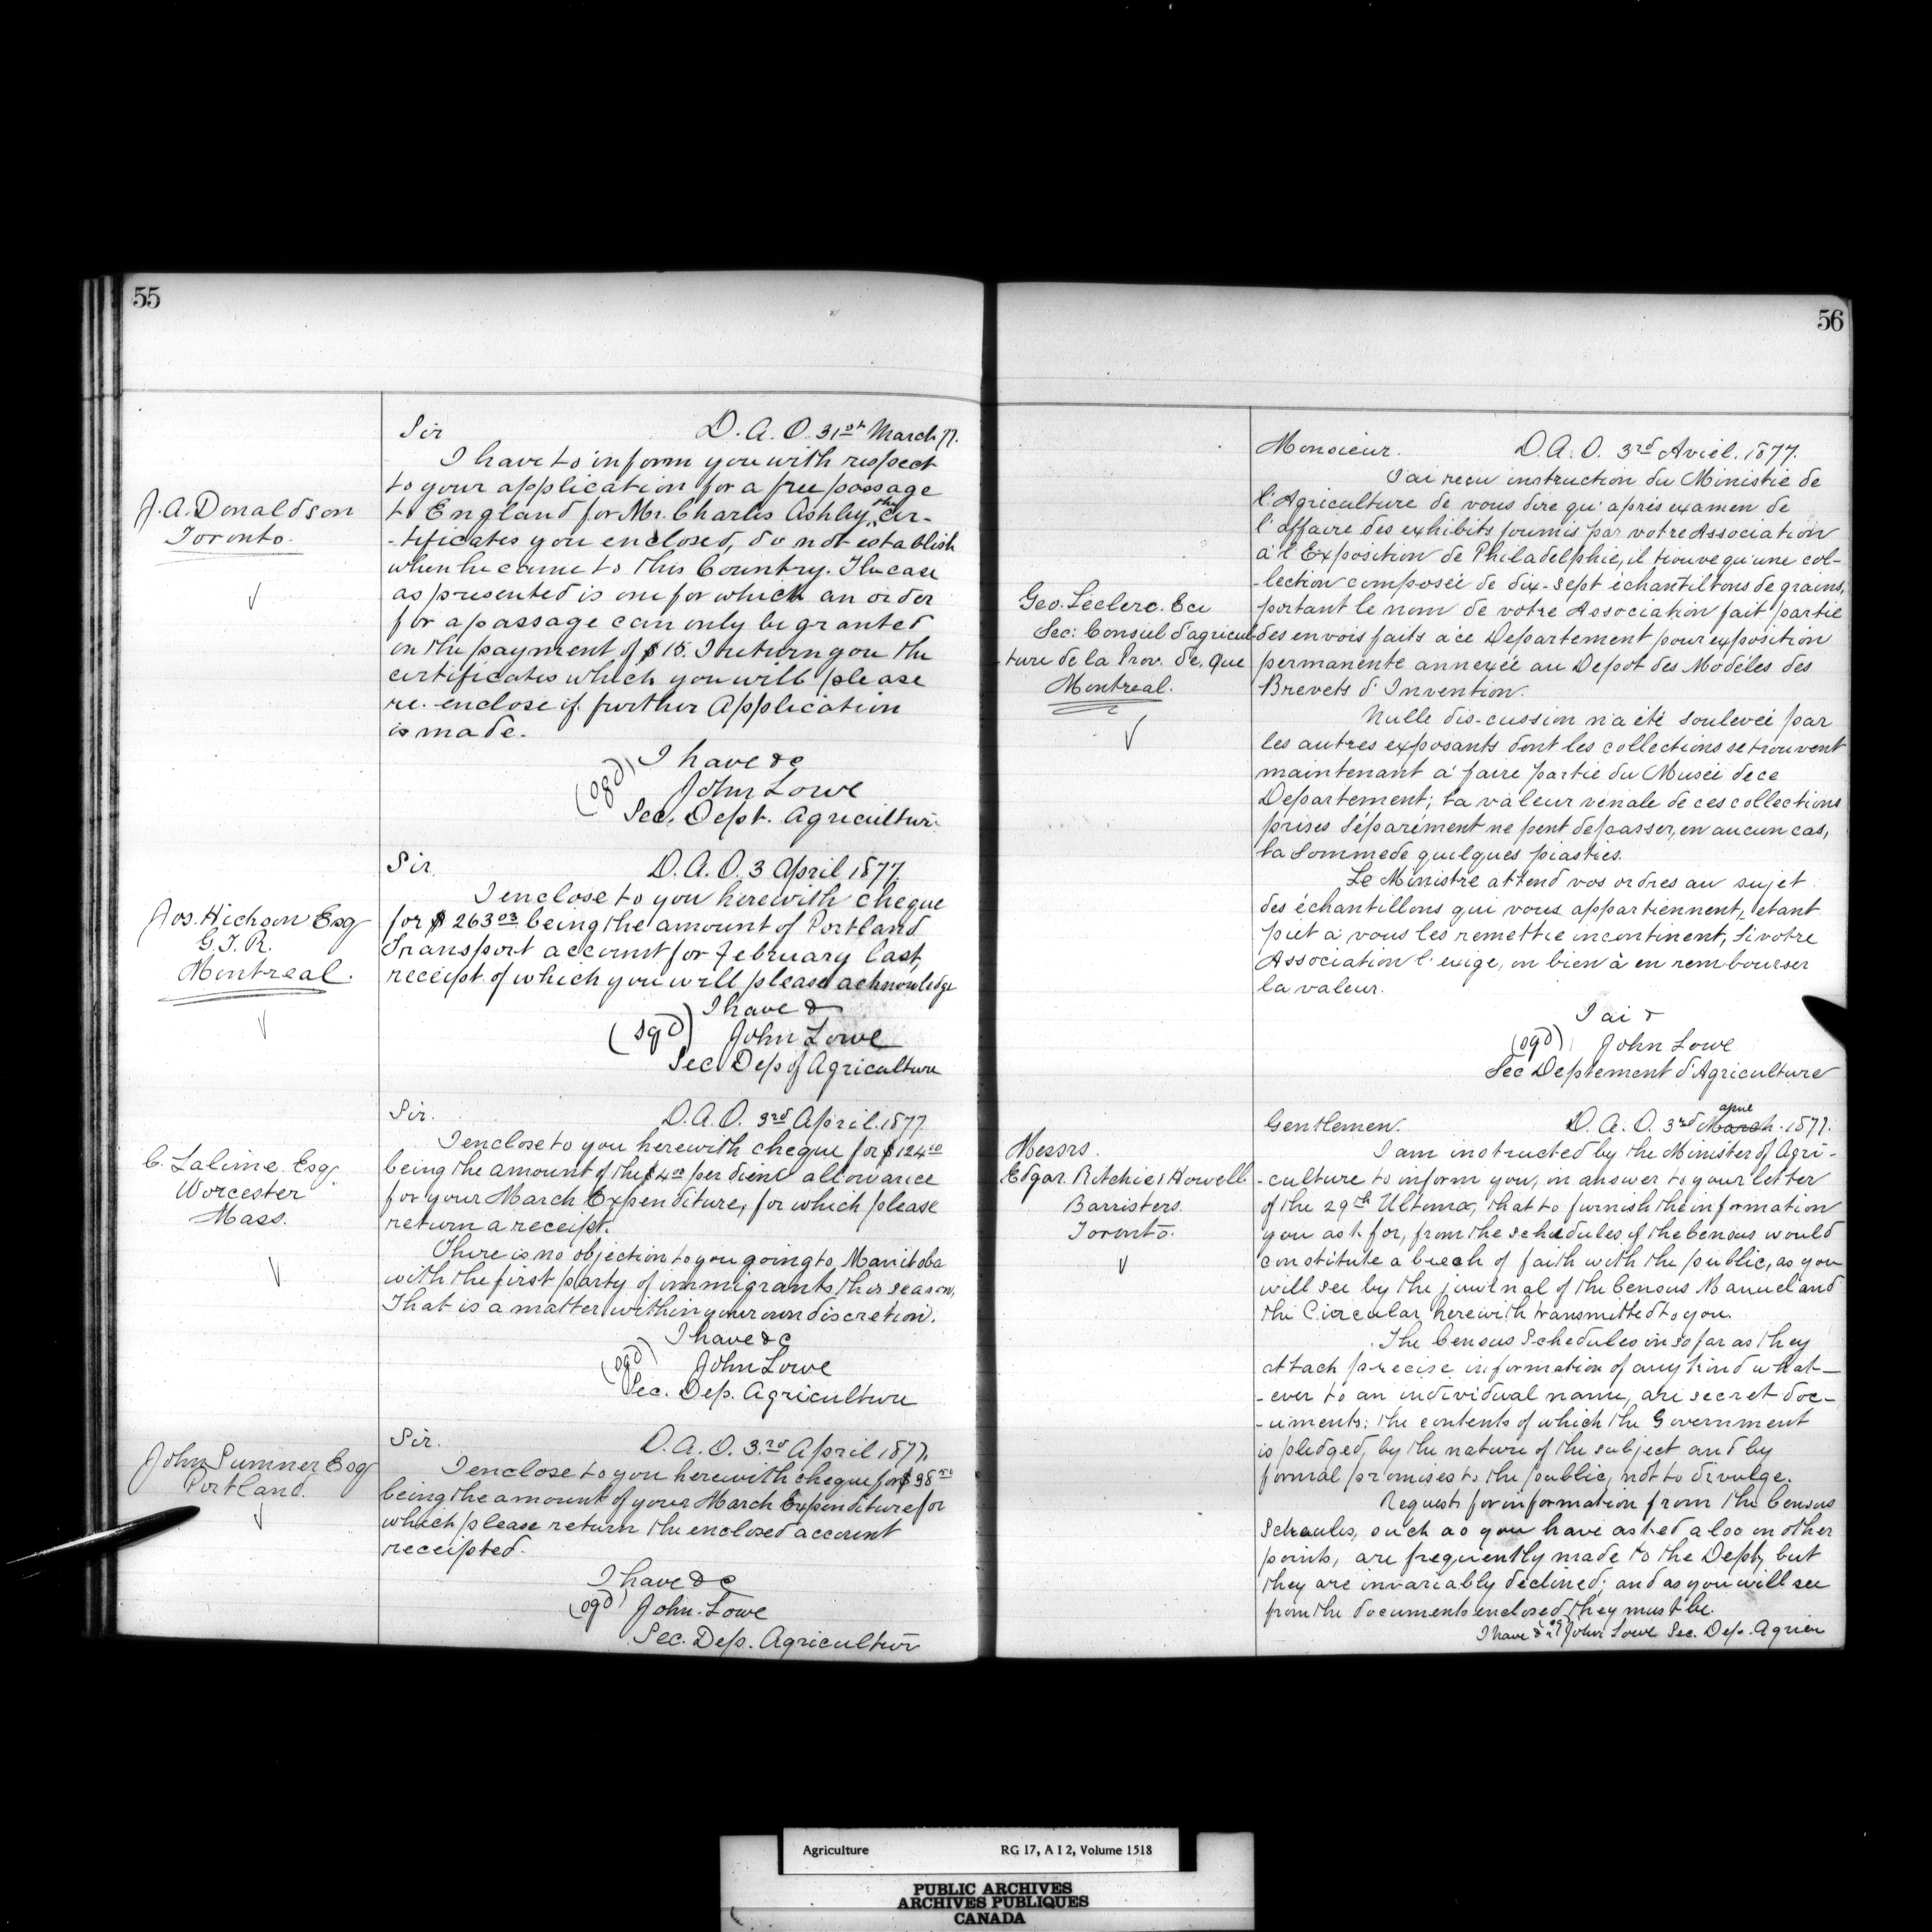 55
Sir D. A. O. 31st March 77.
I have to inform you with respect
to your application for a free passage
J. A. Donaldson
Toronto.
to England for Mr. Charles Ashby, the cer-
-tificates you enclosed, do not establish
when he came to this Country. The case
as presented is one for which an order
for a passage can only be granted
on the payment of $15. I return you the
certificates which you will please
re-enclose if further Application
is made.
I have &c
(sgd) John Lowe
Sec. Dept. Agriculture
Sir. D. A. O. 3 April 1877.
I enclose to you herewith cheque
Jos. Hickson Esq
G. T. R.
Montreal.
for $263 03 being the amount of Portland
Transport account for February last,
receipt of which you will please acknowledge
I have &
(sgd) John Lowe
Sec Dep of Agriculture
Sir. D. A. O. 3rd April. 1877
I enclose to you herewith cheque for $124 00
C. Lalime Esq.
Worcester
Mass.
being the amount of the $4 00 per diem allowance
for your March Expenditure, for which please
return a receipt.
There is no objection to you going to Manitoba
with the first party of immigrants this season,
That is a matter within your own discretion.
I have &c
(sgd) John Lowe
Sec. Dep. Agriculture
Sir. D. A. O. 3rd April 1877.
John Sumner Esq
Portland.
I enclose to you herewith cheque for $98
being the amount of your March Expenditure for
which please return the enclosed account
receipted.
I have &c
(sgd) John Lowe
Sec. Dep. Agriculture
56
Monsieur. D. A. O. 3rd Avril. 1877.
J'ai reçu instruction du Ministre de
l'Agriculture de vous dire qu'aprés examen de
l'affaire des exhibits fournis par votre Association
à l'Exposition de Philadelphie, il trouve qu'une col-
-lection composée de dix-sept échantillons de grains,
Geo. Leclerc. Ecr
Sec: Conseil d'agricul-
ture de la Prov. de. Que
Montreal.
portant le nom de votre Association fait partie
des envois faits à ce Departement pour exposition
permanente annexée au Depot des Modéles des
Brevets d'Invention.
Nulle dis-cussion n'a été soulevée par
les autres exposants dont les collections se trouvent
maintenant à faire partie du Musée de ce
Departement; la valeur vénale de ces collections
prises séparément ne peut depasser, en aucun cas,
la somme de quelques piastres.
Le Ministre attend vos ordres au sujet
des échantillons qui vous appartiennent, etant
pret à vous les remettre incontinent, si votre
Association l'exige, ou bien à en rembourser
la valeur.
J ai &
(sgd) John Lowe
Sec Deptement d'Agriculture
Gentlemen. D. A. O. 3rd March april. 1877.
Messrs.
Edgar Ritchie & Howell
Barristers.
Toronto.
I am instructed by the Minister of Agri-
-culture to inform you, in answer to your letter
of the 29th Ultimo, that to furnish the information
you ask for, from the schedules of the Census would
constitute a breach of faith with the public, as you
will see by the journal of the Census Manuel and
the Circular herewith transmitted to you.
The Census Schedules in so far as they
attach precise information of any kind what-
-ever to an individual name, are secret doc-
-uments: the contents of which the Government
is pledged, by the nature of the subject and by
formal promises to the public, not to divulge.
Requests for information from the Census
Scheules, such as you have asked also on other
points, are frequently made to the Dept, but
they are invariably declined; and as you will see
from the documents enclosed they must be.
I have & (sgd) John Lowe Sec. Dep. Agricu
Agriculture RG 17, A I 2, Volume 1518
PUBLIC ARCHIVES
ARCHIVES PUBLIQUES
CANADA